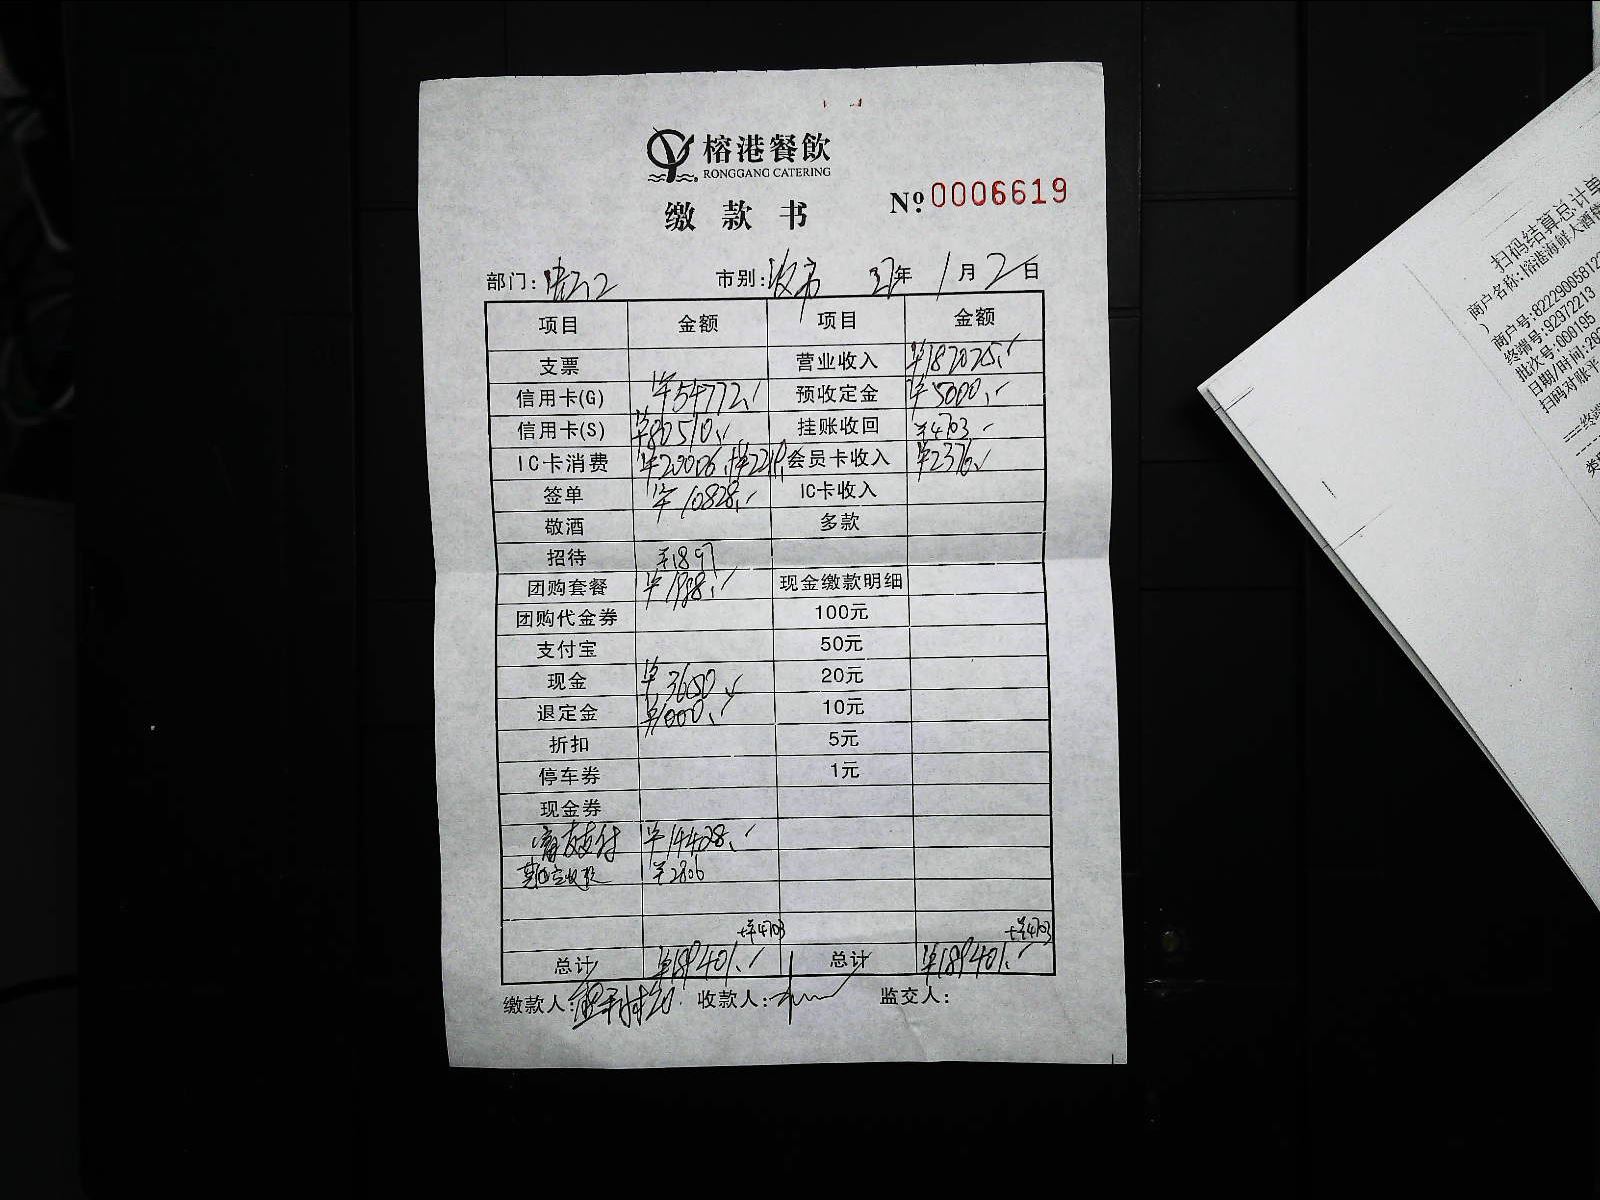 榕港餐飲
RONGGANG CATERING
缴款书
№:0006619
部门: 市别: 年 1月2日
项目 金额 项目 金额
支票 营业收入 ¥182025.
信用卡(G) ¥54772. 预收定金 ¥5000.
信用卡(S) ¥80510. 挂账收回 ¥4703
IC卡消费 会员卡收入 ¥2376
签单 ¥10828. IC卡收入
敬酒 多款
招待 ¥1897
团购套餐 现金缴款明细
团购代金券 100元
支付宝 50元
现金 ¥3650 20元
退定金 ¥1000. 10元
折扣 5元
停车券 1元
现金券
¥14428.
¥2806
+¥4703 +¥4703
总计 ¥189401. 总计 ¥189401.
缴款人: 收款人: 监交人:
扫码结算总计单
商户名称:榕港海鲜大酒
)
商户号:8222900581
终端号:92972213
批次号:000195
日期/时间:20
扫码对账平
===终端
类